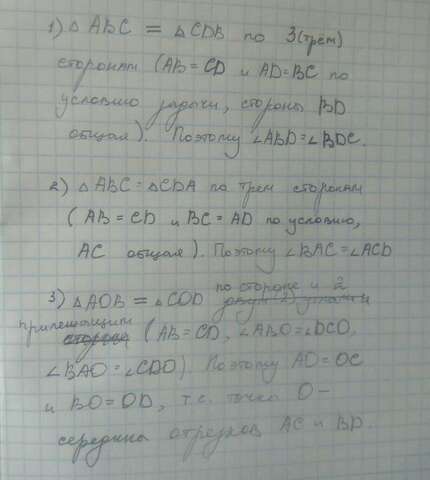 1) △ ABC = △ CDB по 3(трём)
сторонам (AB = CD и AD=BC по
условию задачи, сторона BD
общая). Поэтому ∠ABD=∠BDC.
2) △ ABC = △CDA по трем сторонам
(AB = CD и BC = AD по условию,
AC общая). Поэтому ∠BAC=∠ACD
3) △AOB = △COD по стороне и 2
прилежащим (AB=CD, ∠ABO=∠DCO,
∠BAO=∠CDO). Поэтому AO=OC
и BO=OD, т.е. точка O –
середина отрезков AC и BD.